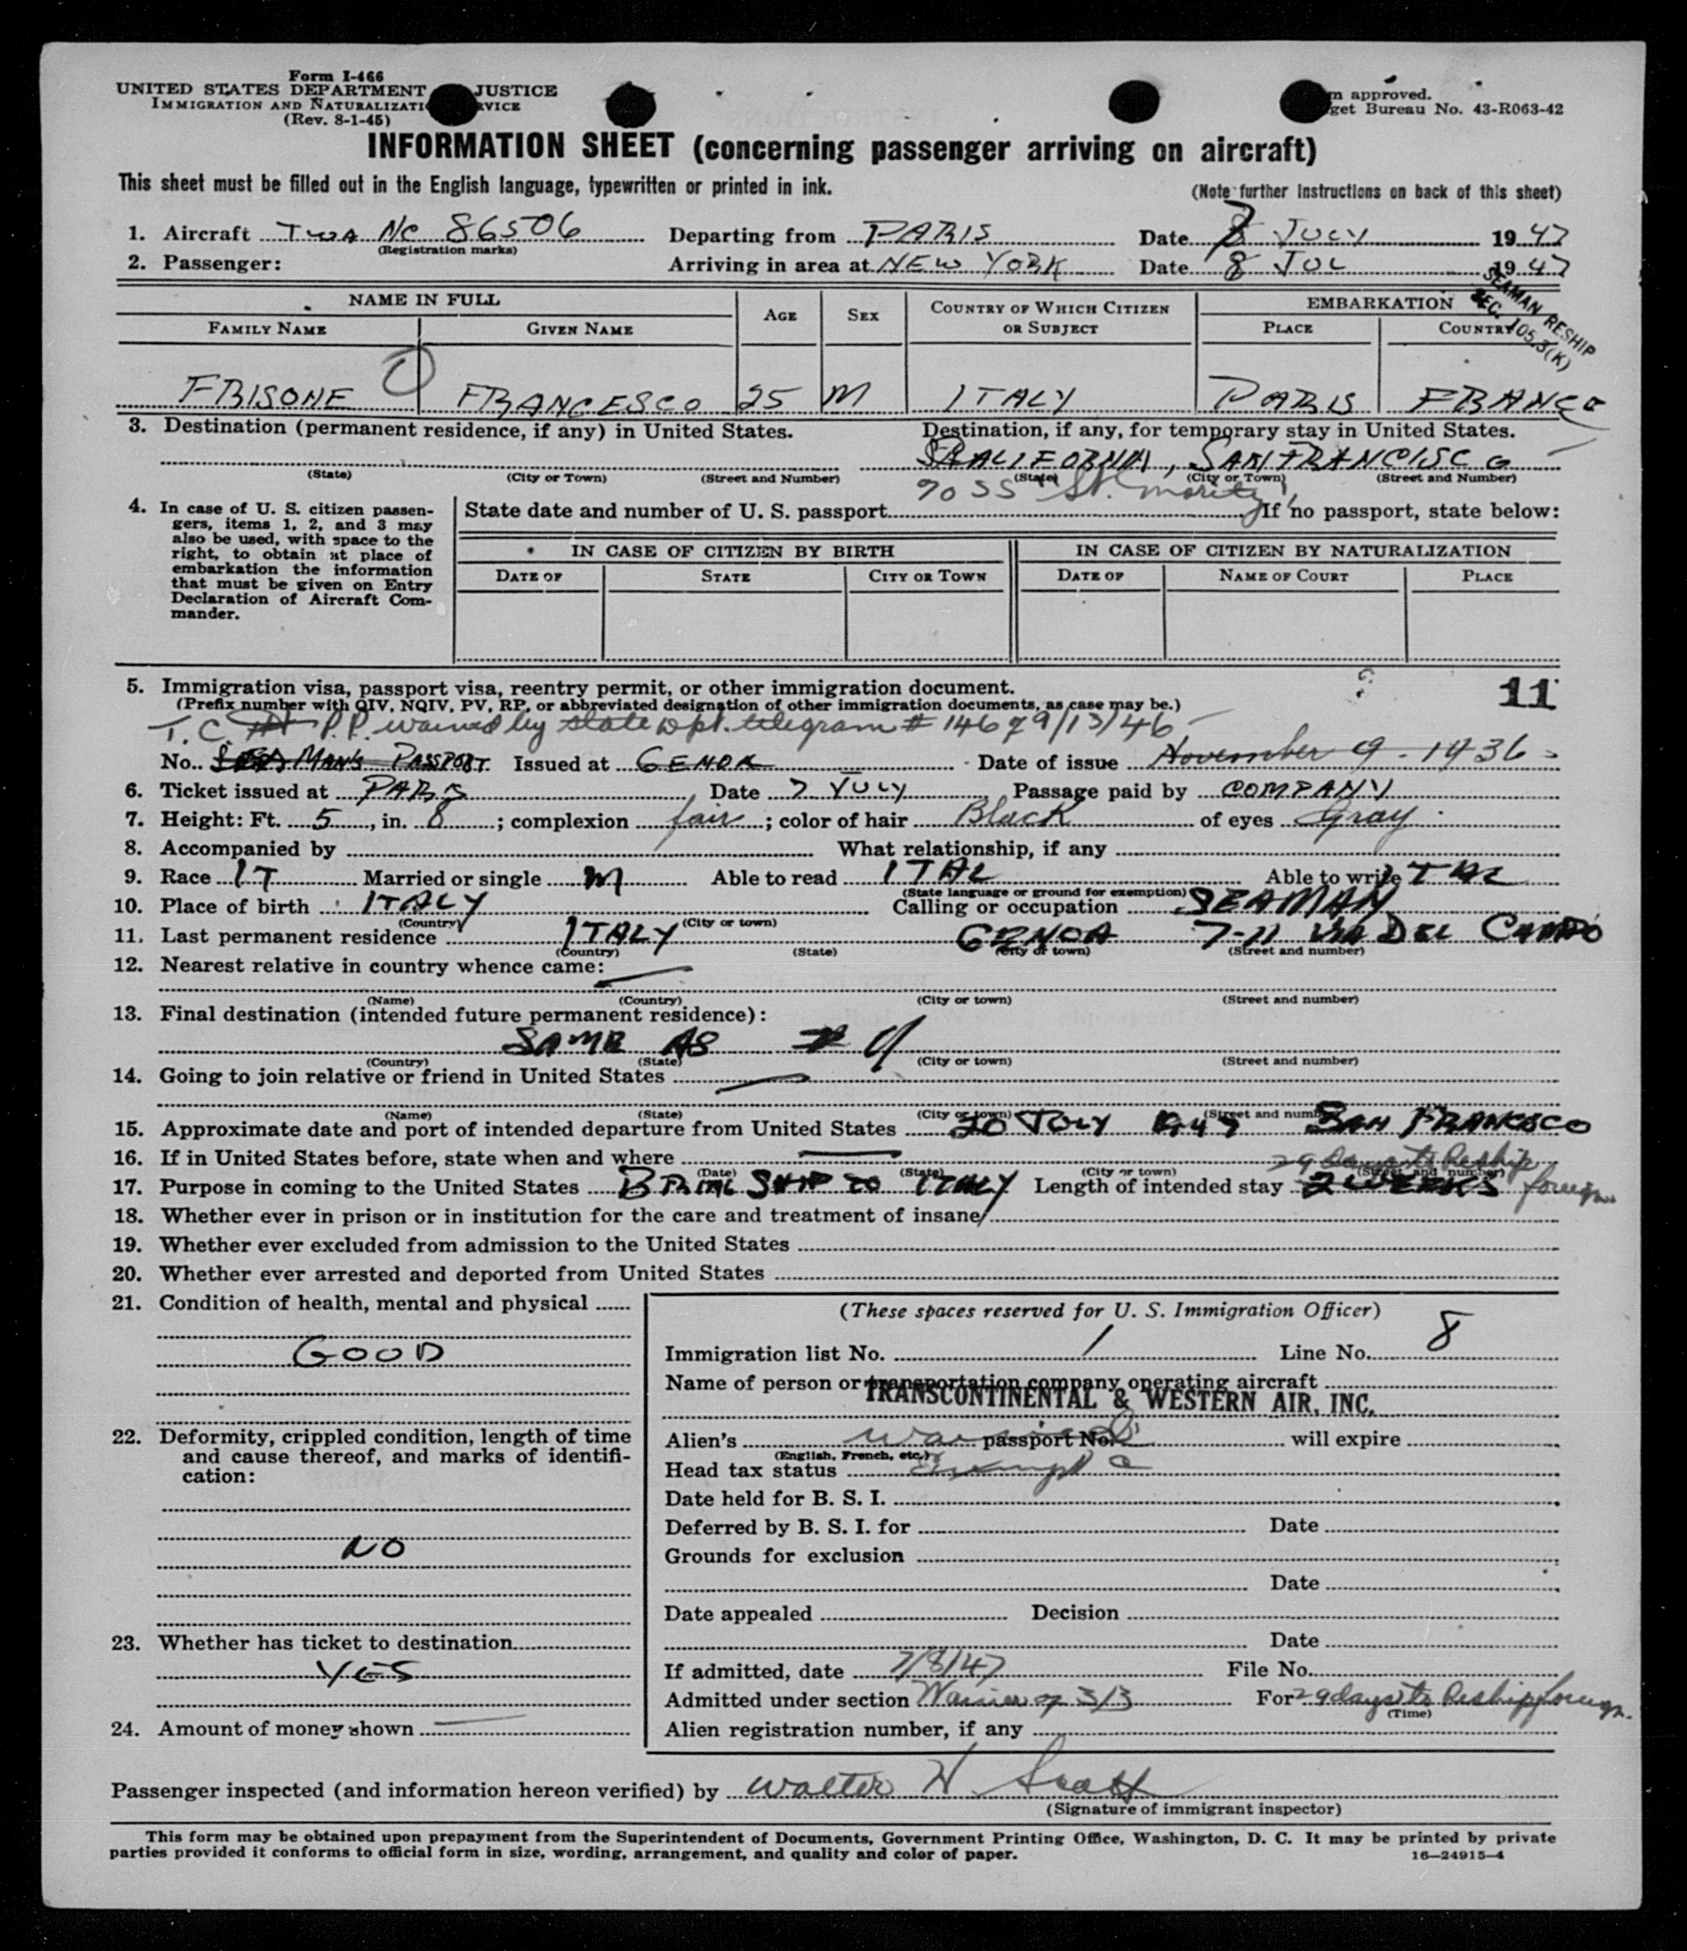 Form I-466
UNITED STATES DEPARTMENT JUSTICE
IMMIGRATION AND NATURALIZATI RVICE
(Rev. 8-1-45)
m approved.
get Bureau No. 43-R063-42
INFORMATION SHEET (concerning passenger arriving on aircraft)
This sheet must be filled out in the English language, typewritten or printed in ink.
(Note further instructions on back of this sheet)
1. Aircraft TWA NC 86506 Departing from PARIS Date 7 JULY 1947
(Registration marks)
2. Passenger: Arriving in area at NEW YORK Date 8 JUL 1947
SEAMAN RESHIP
SEC. 105.3(K)
NAME IN FULL AGE SEX COUNTRY OF WHICH CITIZEN OR SUBJECT EMBARKATION
FAMILY NAME GIVEN NAME PLACE COUNTRY
FRISONE FRANCESCO 25 M ITALY PARIS FRANCE
3. Destination (permanent residence, if any) in United States. Destination, if any, for temporary stay in United States.
CALIFORNIA, SAN FRANCISCO
(State) (City or Town) (Street and Number) (State) (City or Town) (Street and Number)
% SS St. Moritz
4. In case of U. S. citizen passengers, items 1, 2, and 3 may also be used, with space to the right, to obtain at place of embarkation the information that must be given on Entry Declaration of Aircraft Commander.
State date and number of U. S. passport If no passport, state below:
IN CASE OF CITIZEN BY BIRTH IN CASE OF CITIZEN BY NATURALIZATION
DATE OF STATE CITY OR TOWN DATE OF NAME OF COURT PLACE
5. Immigration visa, passport visa, reentry permit, or other immigration document. 11
(Prefix number with QIV, NQIV, PV, RP, or abbreviated designation of other immigration documents, as case may be.)
T.C. P.P. waived by state dpt. telegram # 1467 9/13/46
No. SEAMAN'S PASSPORT Issued at GENOA Date of issue November 9 - 1936
6. Ticket issued at PARIS Date 7 JULY Passage paid by COMPANY
7. Height: Ft. 5, in. 8; complexion fair; color of hair Black of eyes Gray
8. Accompanied by What relationship, if any
9. Race IT Married or single M Able to read ITAL Able to write ITAL
(State language or ground for exemption)
10. Place of birth ITALY Calling or occupation SEAMAN
(Country) (City or town)
11. Last permanent residence ITALY GENOA 7-11 VIA DEL CAMPO
(Country) (State) (City or town) (Street and number)
12. Nearest relative in country whence came:
(Name) (Country) (City or town) (Street and number)
13. Final destination (intended future permanent residence):
SAME AS #
(Country) (State) (City or town) (Street and number)
14. Going to join relative or friend in United States
(Name) (State) (City or town) (Street and number)
15. Approximate date and port of intended departure from United States 20 JULY 1947 SAN FRANCISCO
16. If in United States before, state when and where
(Date) (State) (City or town) (Street and number)
29 days to Reship foreign
17. Purpose in coming to the United States BRING SHIP TO ITALY Length of intended stay 2 WEEKS
18. Whether ever in prison or in institution for the care and treatment of insane
19. Whether ever excluded from admission to the United States
20. Whether ever arrested and deported from United States
21. Condition of health, mental and physical
GOOD
22. Deformity, crippled condition, length of time and cause thereof, and marks of identification:
NO
23. Whether has ticket to destination
YES
24. Amount of money shown
(These spaces reserved for U. S. Immigration Officer)
Immigration list No. 1 Line No. 8
Name of person or transportation company operating aircraft
TRANSCONTINENTAL & WESTERN AIR, INC.
Alien's waived passport No. will expire
(English, French, etc.)
Head tax status Exempt
Date held for B. S. I.
Deferred by B. S. I. for Date
Grounds for exclusion
Date
Date appealed Decision
Date
If admitted, date 7/8/47 File No.
Admitted under section Waiver of 3/3 For 29 days to Reship foreign.
(Time)
Alien registration number, if any
Passenger inspected (and information hereon verified) by Walter H. Scott
(Signature of immigrant inspector)
This form may be obtained upon prepayment from the Superintendent of Documents, Government Printing Office, Washington, D. C. It may be printed by private
parties provided it conforms to official form in size, wording, arrangement, and quality and color of paper.
16—24915-4